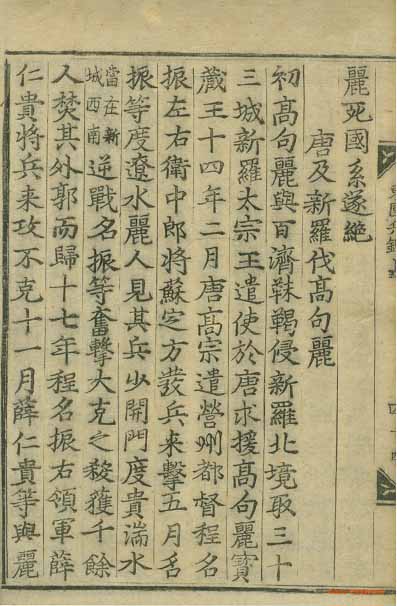 麗死國系遂絶
唐及新羅伐高句麗
初高句麗與百濟靺鞨侵新羅北境取三十
三城新羅太宗王遣使於唐求援高句麗寶
蔵王十四年二月唐高宗遣營州都督程名
振左右衛中郎將蘇定方發兵来擊五月名
振等度遼水麗人見其兵少開門度貴湍水
當在新
城西南
逆戰名振等奮擊大克之殺獲千餘
人焚其外郭而歸十七年程名振右領軍薛
仁貴將兵来攻不克十一月薛仁貴等與麗